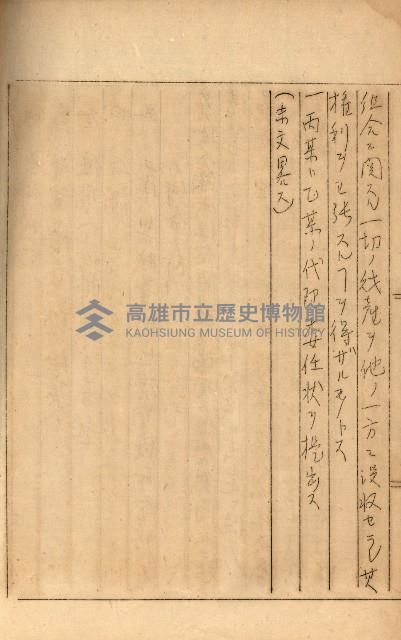 組合ニ関スル一切ノ残産ヲ他ノ一方ニ没収セラレ其
権利ヲ主張スルヿヲ得ザルモノトス
一 丙某ハ乙某ノ代印委任状ヲ提出ス
(末文畧ス)
高雄市立歷史博物館
KAOHSIUNG MUSEUM OF HISTORY